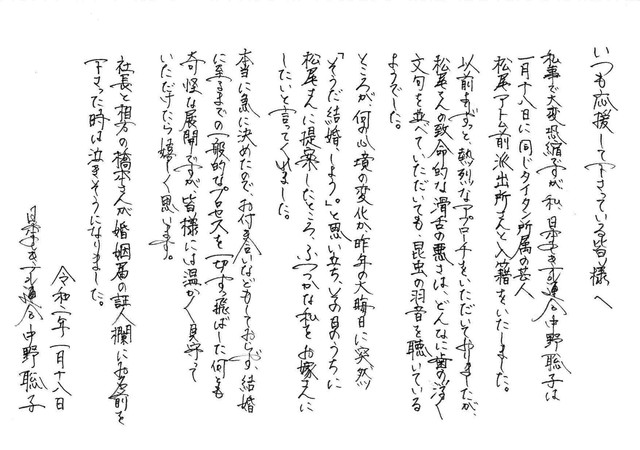 いつも応援して下さっている皆様へ
私事で大変恐縮ですが私、日本エレキテル連合中野聡子は
一月十八日に同じタイタン所属の芸人
松尾アトム前派出所さんと入籍をいたしました。
以前よりずっと、熱烈なアプローチをいただいておりましたが、
松尾さんの致命的な滑舌の悪さは、どんなに歯の浮く
文句を並べていただいても、昆虫の羽音を聴いている
ようでした。
ところが、何の心境の変化か、昨年の大晦日に突然
「そうだ結婚しよう」。と思い立ち、その日のうちに
松尾さんに提案したところ、ふつつかな私をお嫁さんに
したいと言ってくれました。
本当に急に決めたので、お付き合いなどもしておらず、結婚
に至るまでの一般的なプロセスを一切すっ飛ばした何とも
奇怪な展開ですが、皆様には温かく見守って
いただけたら嬉しく思います。
社長と相方の橋本さんが婚姻届の証人欄にお名前を
下さった時は泣きそうになりました。
令和二年一月十八日
日本エレキテル連合 中野聡子